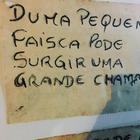 DUMA PEQUEN
FAÍSCA PODE
SURGIR UMA
GRANDE CHAMA